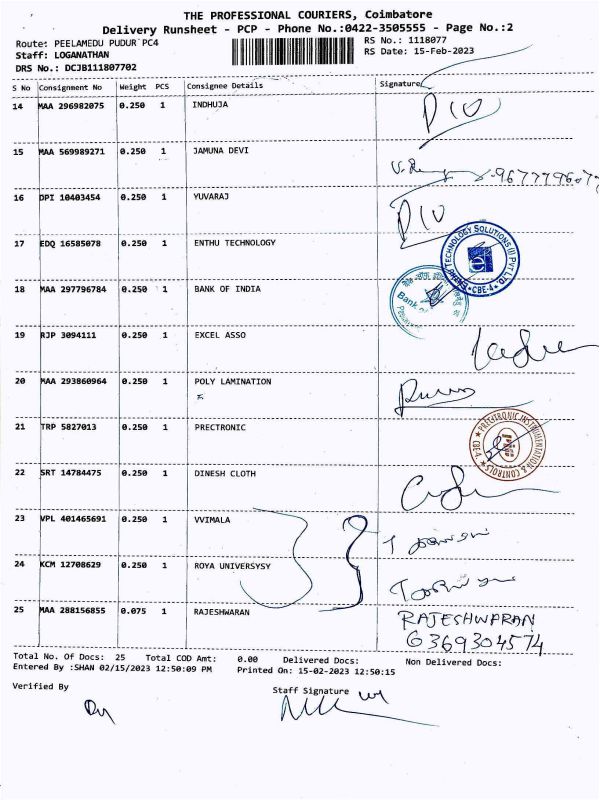 THE PROFESSIONAL COURIERS, Coimbatore
Delivery Runsheet - PCP - Phone No.:0422-3505555 - Page No.:2
Route: PEELAMEDU PUDUR PC4 RS No.: 1118077
Staff: LOGANATHAN RS Date: 15-Feb-2023
DRS No.: DCJB111807702
S No Consignment No Weight PCS Consignee Details Signature
14 MAA 296982075 0.250 1 INDHUJA
15 MAA 569989271 0.250 1 JAMUNA DEVI
16 DPI 10403454 0.250 1 YUVARAJ
17 EDQ 16585078 0.250 1 ENTHU TECHNOLOGY
ENTHU TECHNOLOGY SOLUTIONS (I) PVT LTD. CBE-4
18 MAA 297796784 0.250 1 BANK OF INDIA
Bank of
19 RJP 3094111 0.250 1 EXCEL ASSO
20 MAA 293860964 0.250 1 POLY LAMINATION
21 TRP 5827013 0.250 1 PRECTRONIC
PRECITRONIC INSTRUMENTATION & CONTROLS CBE-4
22 SRT 14784475 0.250 1 DINESH CLOTH
23 VPL 401465691 0.250 1 VVIMALA
24 KCM 12708629 0.250 1 ROYA UNIVERSYSY
25 MAA 288156855 0.075 1 RAJESHWARAN RAJESHWARAN
6369304574
Total No. Of Docs: 25 Total COD Amt: 0.00 Delivered Docs: Non Delivered Docs:
Entered By :SHAN 02/15/2023 12:50:09 PM Printed On: 15-02-2023 12:50:15
Verified By Staff Signature